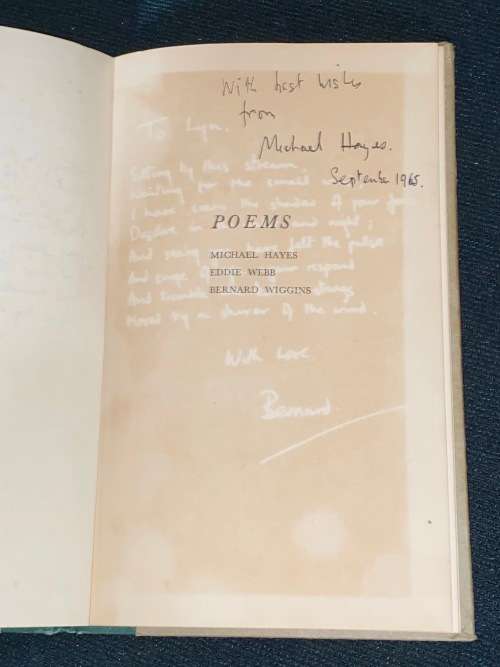 With best wishes
from
Michael Hayes.
September 1965.
To Lyn.
Sitting by this stream,
Waiting for the
I have seen the shadow of your
in and night;
And seeing have felt the pulse
And surge of respond
And
Moved by a of the wind.
With love
Bernard.
POEMS
MICHAEL HAYES
EDDIE WEBB
BERNARD WIGGINS